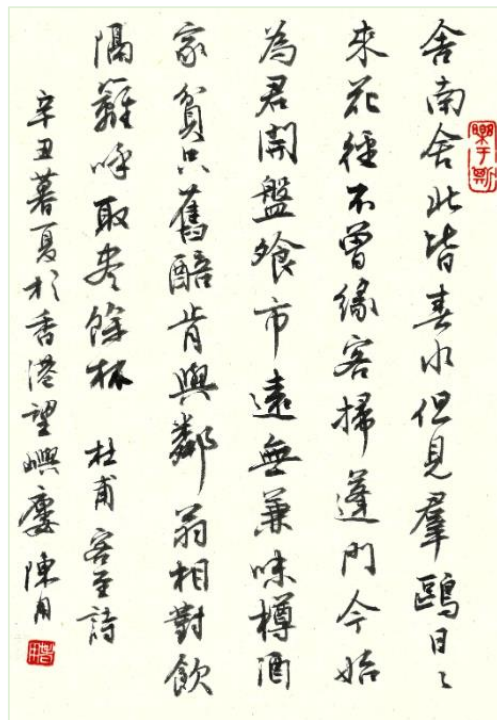 舍南舍北皆春水但見羣鷗日々
來花徑不曾緣客掃蓬門今始
為君開盤飧市遠無兼味樽酒
家貧只舊醅肯與鄰翁相對飲
隔籬呼取盡餘杯 杜甫客至詩
辛丑暮夏於香港望嶼廔陳用